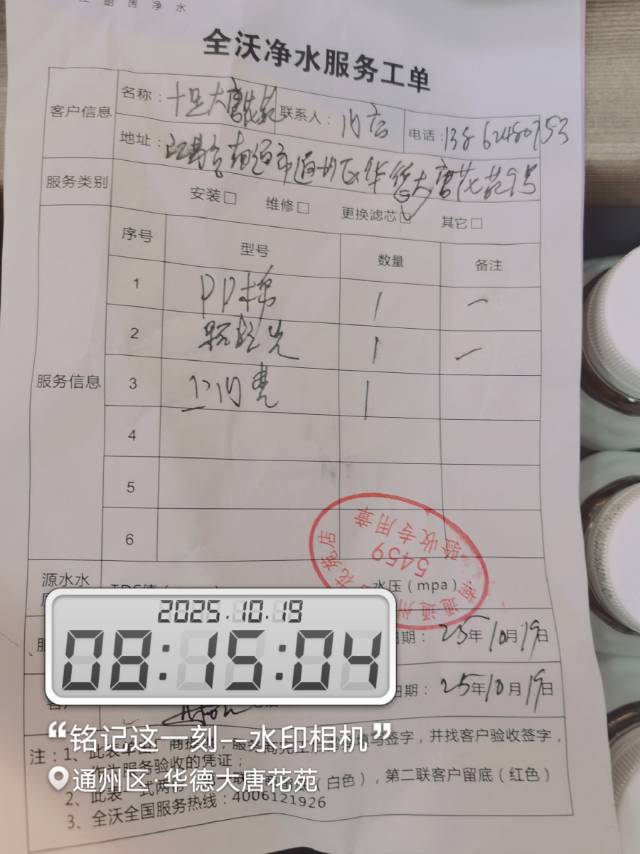 厨房净水
全沃净水服务工单
客户信息
名称：十足大唐花苑
联系人：门店
电话：
地址：江苏省南通市通州区华德大唐花苑9号
服务类别
安装□ 维修□ 更换滤芯□ 其它□
服务信息
序号 型号 数量 备注
1 PP棉 1 一
2 1 一
3 1
4
5
6
验收专用章
5459
源水水
水压（mpa）
日期：25年10月19日
日期：25年10月19日
2025.10.19
08:15:04
“铭记这一刻--水印相机”
通州区·华德大唐花苑
注：1、
签字，并找客户验收签字，
服务验收的凭证；
2、此表一式两
白色），第二联客户留底（红色）
3、全沃全国服务热线：4006121926